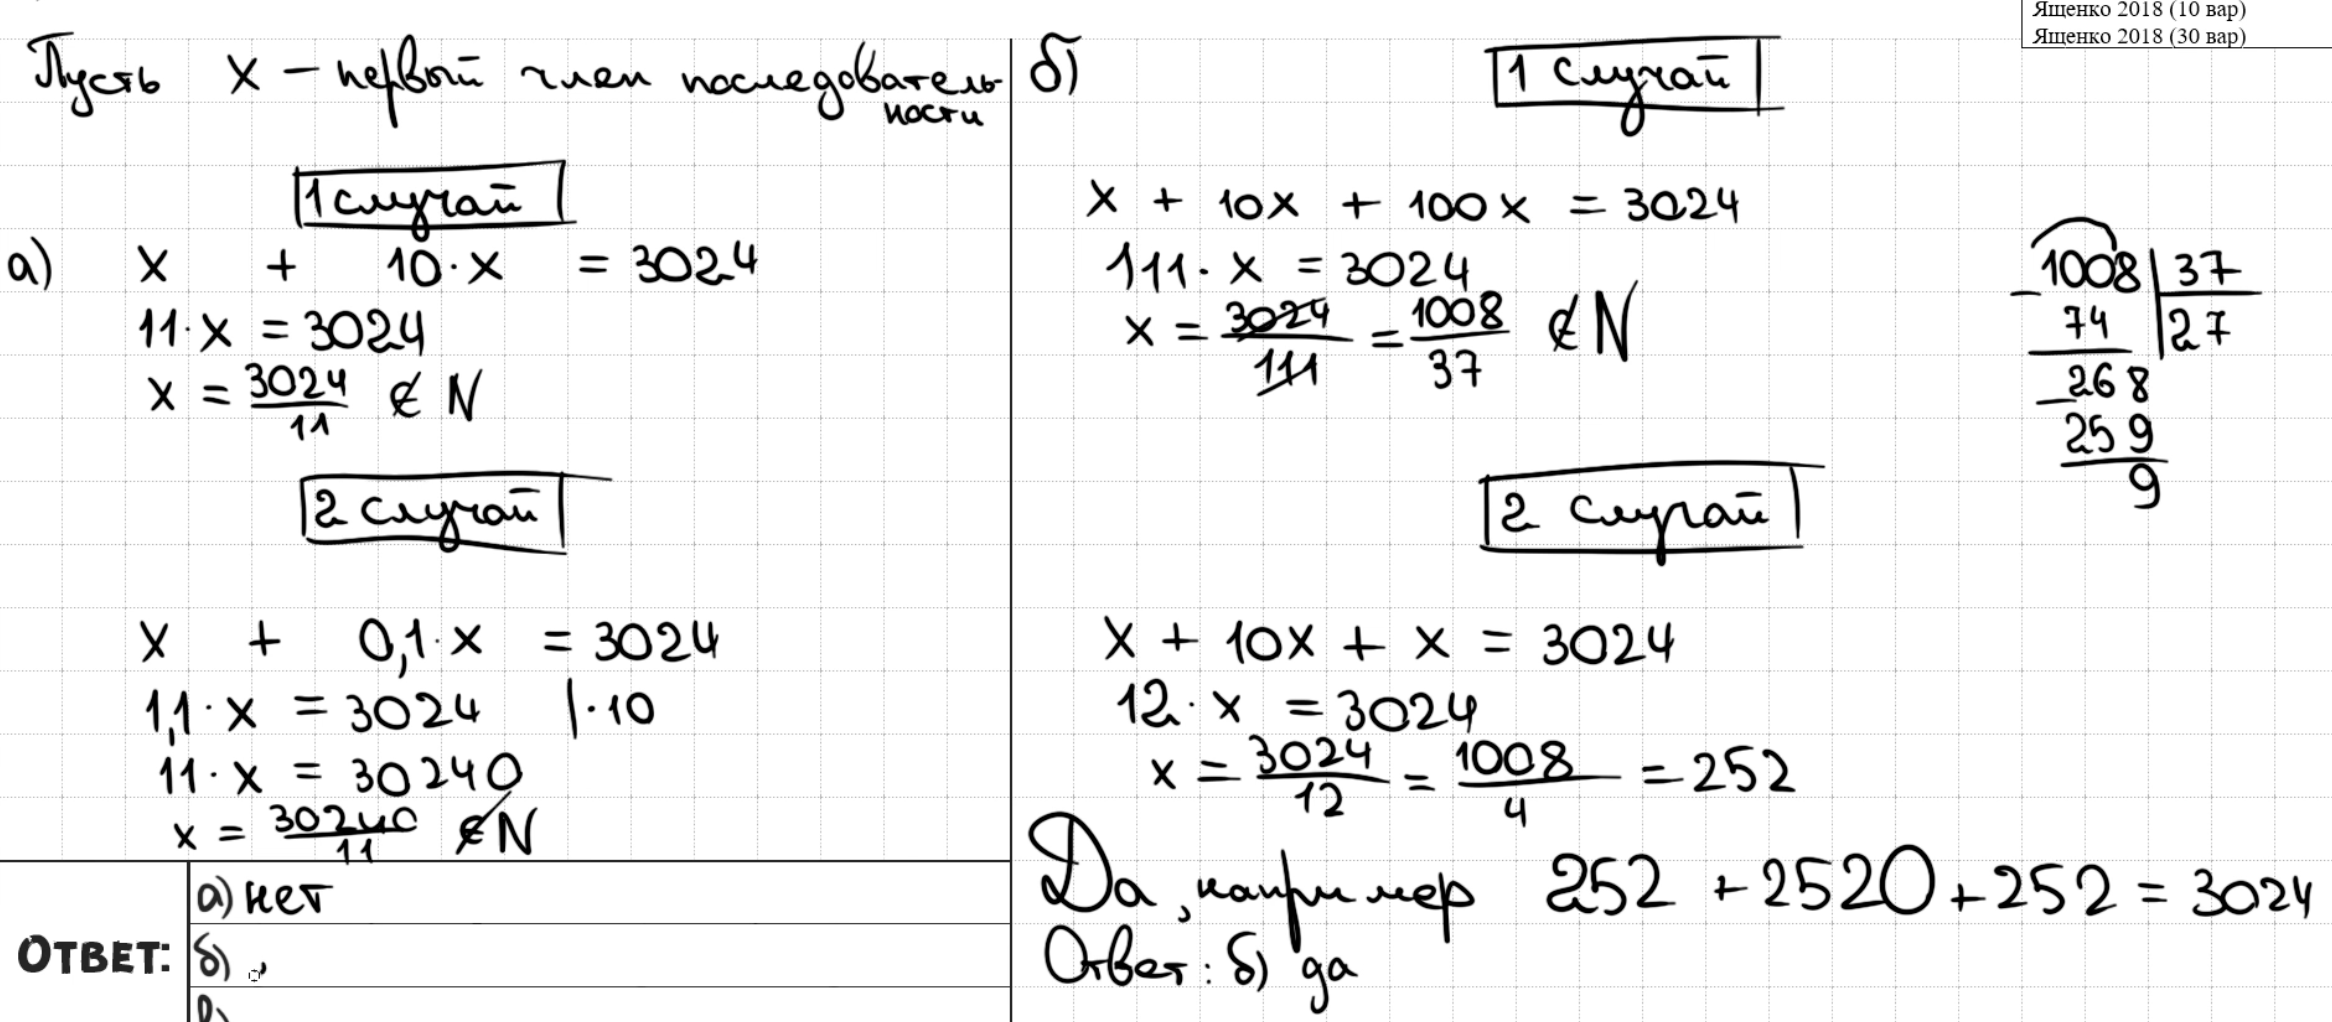 Ященко 2018 (10 вар)
Ященко 2018 (30 вар)
Пусть x – первый член последователь-
ности
1 случай
а) x + 10·x = 3024
11·x = 3024
x = 3024/11 ∉ N
2 случай
x + 0,1·x = 3024
1,1·x = 3024 |·10
11·x = 30240
x = 30240/11 ∉ N
ОТВЕТ:
а) нет
б)
в)
б)
1 случай
x + 10x + 100x = 3024
111·x = 3024
x = 3024/111 = 1008/37 ∉ N
1008 | 37
74 | 27
268
259
9
2 случай
x + 10x + x = 3024
12·x = 3024
x = 3024/12 = 1008/4 = 252
Да, например 252 + 2520 + 252 = 3024
Ответ: б) да